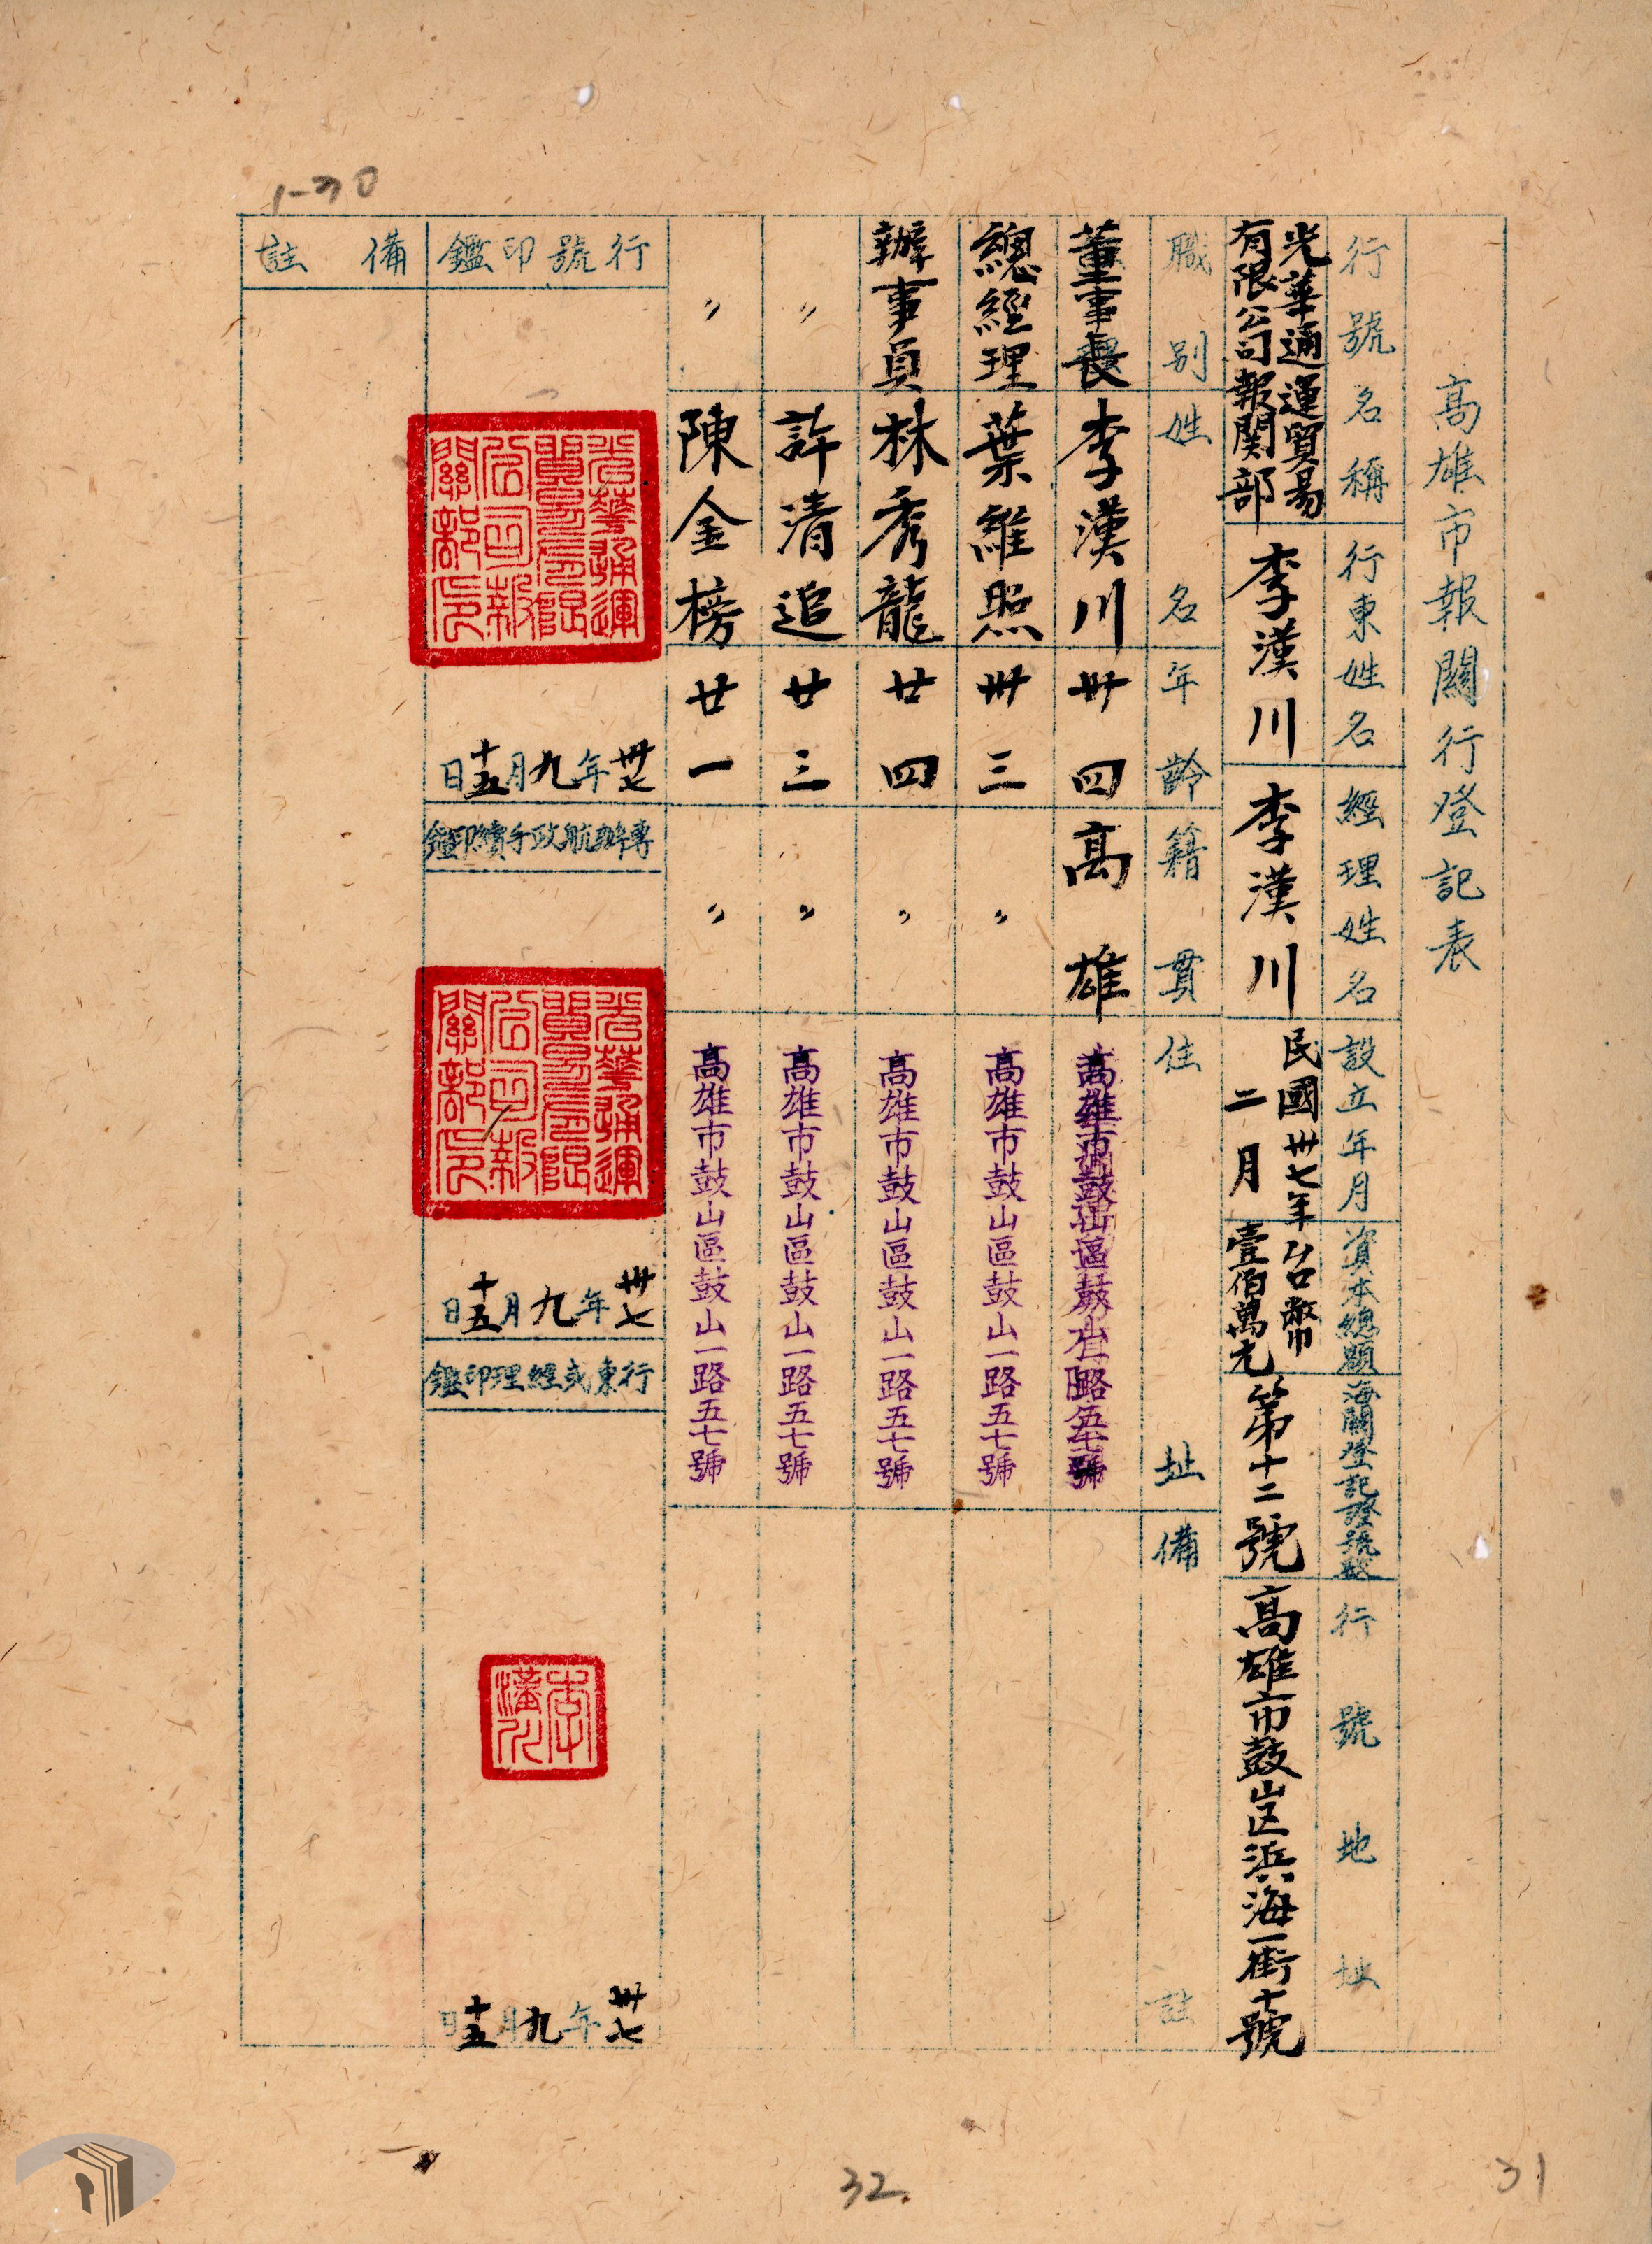 高雄市報關行登記表
行號名稱
行東姓名
經理姓名
設立年月
資本總額
海關登記證號數
行號地址
光華通運貿易
有限公司報関部
李漢川
李漢川
民國卅七年
二月
台幣
壹佰萬元
第十二號
高雄市鼓山区浜海一街十號
職別
姓名
年齡
籍貫
住址
備註
董事長
李漢川
卅四
高雄
總經理
葉維熙
卅三
〃
高雄市鼓山區鼓山一路五七號
辦事員
林秀龍
廿四
〃
高雄市鼓山區鼓山一路五七號
〃
許清追
廿三
〃
高雄市鼓山區鼓山一路五七號
〃
陳金榜
廿一
〃
高雄市鼓山區鼓山一路五七號
行號印鑑
光華通運
貿易有限
公司報
關部印
卅七年九月十五日
專辦航政手續印鑑
光華通運
貿易有限
公司報
關部印
卅七年九月十五日
行東或經理印鑑
李
漢川
卅七年九月十五日
備註
1-30
32
31